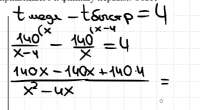 t меде - t быстр = 4
140^(x / x-4 - 140^(x-4 / x = 4
140x - 140x + 140·4 / x² - 4x =